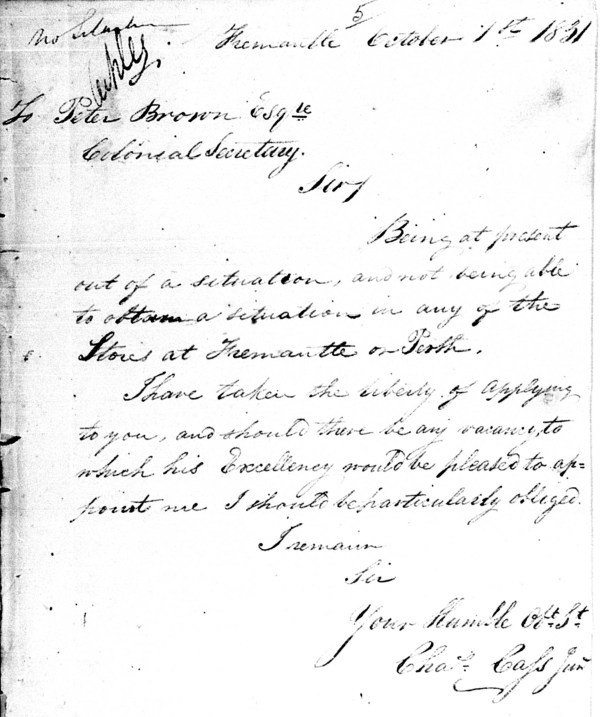 5
No
Fremantle October 1st 1831
To Peter Brown Esqre
Colonial Secretary.
Sir
Being at present
out of a situation, and not being able
to obtain a situation in any of the
Stores at Fremantle or Perth.
I have taken the liberty of applying
to you, and should there be any vacancy, to
which his Excellency would be pleased to ap=
point me I should be particularly obliged.
I remain
Sir
Your Humble Obt. St.
Chas. Cass Junr